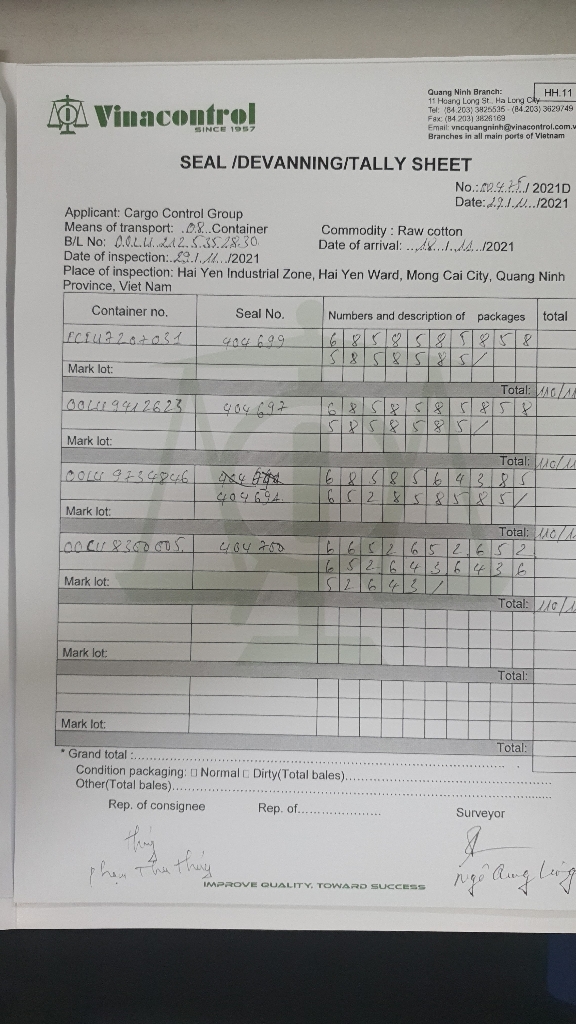 Quang Ninh Branch:
HH.11
11 Hoang Long St., Ha Long City
Tel: (84.203) 3825535 - (84.203) 3629749
Fax: (84.203) 3826169
Email: vncquangninh@vinacontrol.com.v
Branches in all main ports of Vietnam
Vinacontrol
SINCE 1957
SEAL /DEVANNING/TALLY SHEET
No.: / 2021D
Date: 29/11/2021
Applicant: Cargo Control Group
Means of transport: 08 Container
Commodity : Raw cotton
B/L No: OOLU 212 535 2830
Date of arrival: 18/11/2021
Date of inspection: 29/11/2021
Place of inspection: Hai Yen Industrial Zone, Hai Yen Ward, Mong Cai City, Quang Ninh
Province, Viet Nam
Container no. Seal No. Numbers and description of packages total
404699 6 8 5 8 5 8 5 8 5 8
5 8 5 8 5 8 5 /
Mark lot:
Total: 110/
OOLU 9412623 404697 6 8 5 8 5 8 5 8 5 8
5 8 5 8 5 8 5 /
Mark lot:
Total: 110/
OOLU 9734846 6 8 5 8 5 6 4 3 8 5
404694 6 5 2 8 5 8 5 8 5 /
Mark lot:
Total: 110/
8360005 404700 6 6 5 2 6 5 2 6 5 2
6 5 2 6 4 3 6 4 3 6
Mark lot: 5 2 6 4 3 /
Total: 110/
Mark lot:
Total:
Mark lot:
Total:
* Grand total :
Condition packaging: □ Normal □ Dirty(Total bales)
Other(Total bales)
Rep. of consignee Rep. of Surveyor
Thúy
Phạm Thu Thúy
Ngô
IMPROVE QUALITY, TOWARD SUCCESS